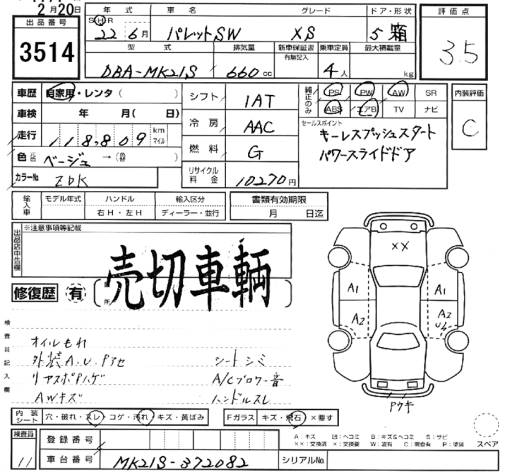 2月20日
出品番号
3514
年式 車名 グレード ドア・形状
S H R 22年6月 パレットSW XS 5 箱
型式 排気量 新車保証書 有無記入 乗車定員 最大積載量
DBA-MK21S 660cc 4人 kg
評価点
3.5
車歴 自家用・レンタ
車検 年 月(日)
走行 118,809 km マイル
色 ベージュ →
カラーNo ZDK
シフト 1AT
冷房 AAC
燃料 G
リサイクル料金 10270円
純正のみ PS PW AW SR
ABS エアB TV ナビ
セールスポイント
キーレスプッシュスタート
パワースライドドア
内装評価
C
輸入車 モデル年式 ハンドル 輸入区分
右H・左H ディーラー・並行
書類有効期限
月 日迄
※注意事項等記載
売切車輌
修復歴 有
検査員記入欄
オイルもれ
外装A.U.Pアセ
リアスポPハゲ
AWキズ
シートシミ
A/Cブロワー音
ハンドルスレ
XX
A1 A1
A2 A2
U1
Pウキ
内装シート 穴・破れ・スレ・コゲ・汚れ・キズ・黄ばみ
Fガラス キズ・飛石・X要す
スペア
検査員
11
登録番号
車台番号 MK21S-372082 シリアルNo